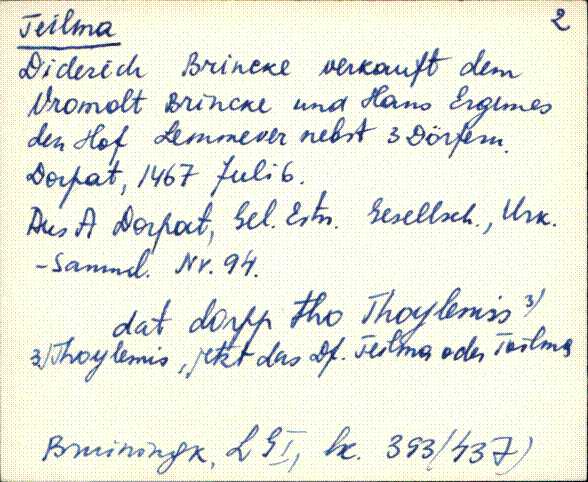 Teilma 2
Diderich Brincke verkauft dem
Vromolt Brincke und Hans Ergemes
den Hof Lemmever nebst 3 Dörfern.
Dorpat, 1467 Juli 6.
Aus A Dorpat, Gel. Estn. Gesellsch., Urk.
-Samml. Nr. 94.
dat dorpp tho Thoylemis 3)
3) Thoylemis, jetzt das Df. Teilma oder Toilma
Bruiningk, L G I, lk. 393/437)